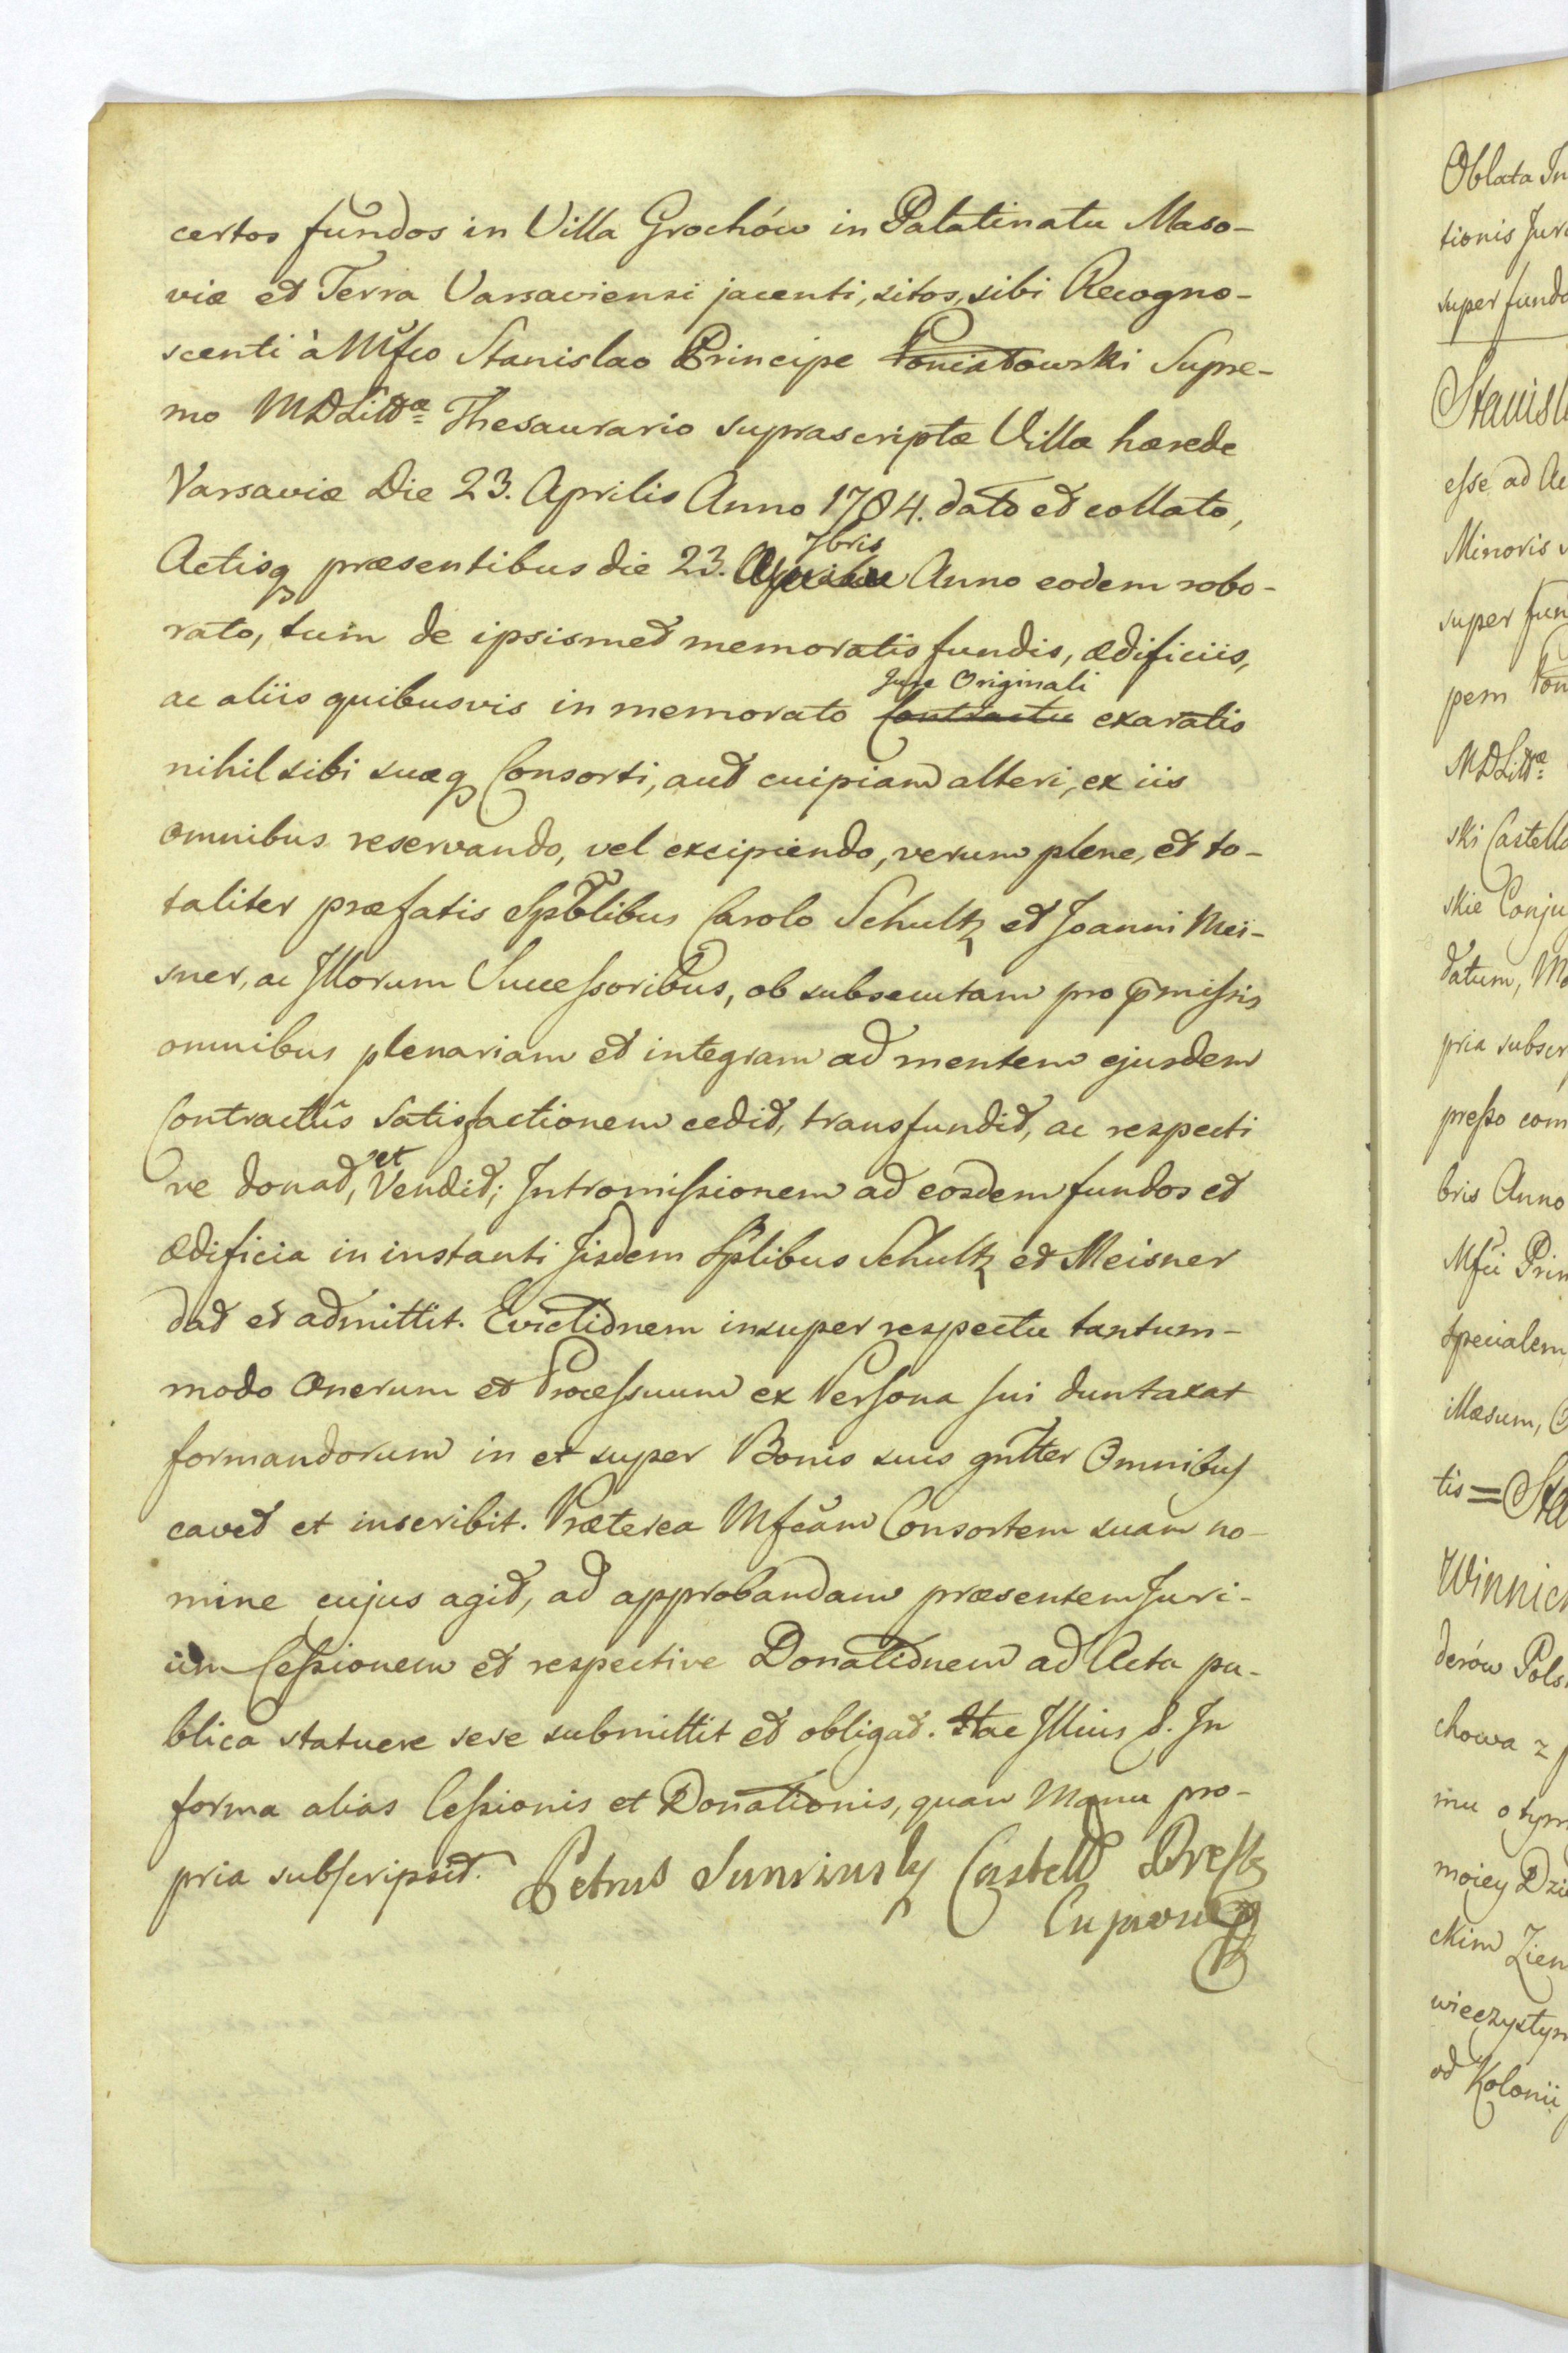 certos fundos in Villa Grochów in Palatinatu Maso-
viæ et Terra Varsaviensi jacenti, sitos, sibi Recogno-
scenti à Mfco Stanislao Principe Poniatowski Supre-
mo MDLittæ Thesaurario suprascriptæ Villæ hærede
Varsaviæ Die 23. Aprilis Anno 1784. dato et collato,
7bris
Actisq præsentibus die 23. Anno eodem robo-
rato, tum de ipsismet memoratis fundis, ædificiis,
Jure Originali
ac aliis quibusvis in memorato Contractu exaratis
nihil sibi suæq Consorti, aut cuipiam alteri, ex iis
omnibus reservando, vel excipiendo, verum plene, et to-
taliter præfatis Spblibus Carolo Schultz et Joanni Mei-
sner, ac Illorum Successoribus, ob subsecutam pro pmissis
omnibus plenariam et integram ad mentem ejusdem
Contractûs Satisfactionem cedit, transfundit, ac respecti
et
ve donat, Vendit; Intromissionem ad eosdem fundos et
Ædificia in instanti Jisdem Splibus Schultz et Meisner
dat et admittit. Evictionem insuper respectu tantum-
modo Onerum et Processuum ex Persona sui duntaxat
formandorum in et super Bonis suis gnlter Omnibus
cavet et inscribit. Præterea Mfcam Consortem suam no-
mine cujus agit, ad approbandam præsentem Juri-
um Cessionem et respective Donationem ad Acta pu-
blica statuere sese submittit et obligat. Hac Illius S. In
forma alias Cessionis et Donationis, quam Manu pro-
pria subscripsit. Petrus Castell
Oblata In
tionis Jur
super fund
Stanisl
esse ad Ac
Minoris
super fun
pem Pon
MDLittæ
ski Castell
skie Conju
datum, M
pria subscr
presso com
bris Anno
Mfci Prin
specialem
illæsum,
tis = Sta
Winnic
derów Pols
chowa z
mu o tym
moiey Dzi
ckim Ziem
wieczystym
od Kolonii